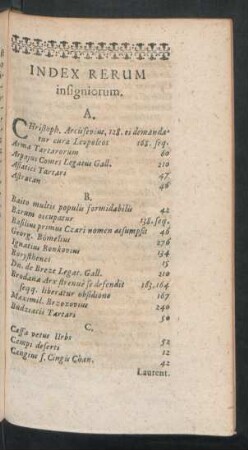 INDEX RERUM
insigniorum.
A.
CHristoph. Arcissevius, 128. ei demanda-
tur cura Leopoleos 168. seq.
Arma Tartarorum 60
Arpojus Comes Legatus Gall. 210
Asiatici Tartari 47
Astracan 46
B.
Baito multis populis formidabilis 42
Barum occupatur 138. seq.
Basilius primus Czari nomen assumpsit 46
Georg. Bömelius 276
Ignatius Bonkovius 234
Borysthenes 15
Dn. de Breze Legat. Gall. 210
Brodana Arx strenuè se defendit 163. 164
seqq. liberatur obsidione 167
Maximil. Brzozovius 240
Budziacii Tartari 50
C.
Caffa vetus Urbs 52
Campi deserti 12
Cangius s. Cingis Chan. 42
Laurent.